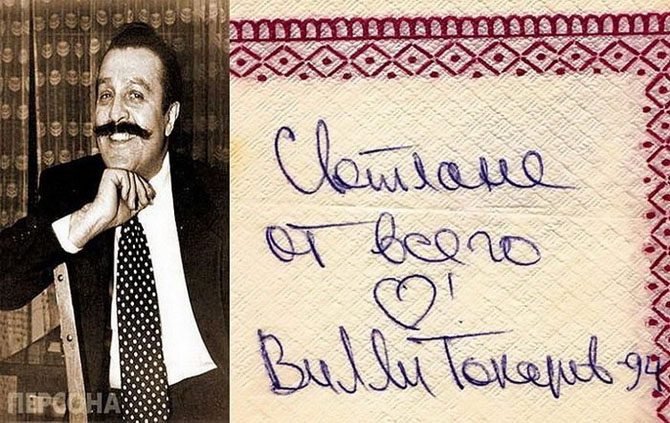 Светлане
от всего
♡!
Вилли Токарев -94
ПЕРСОНА